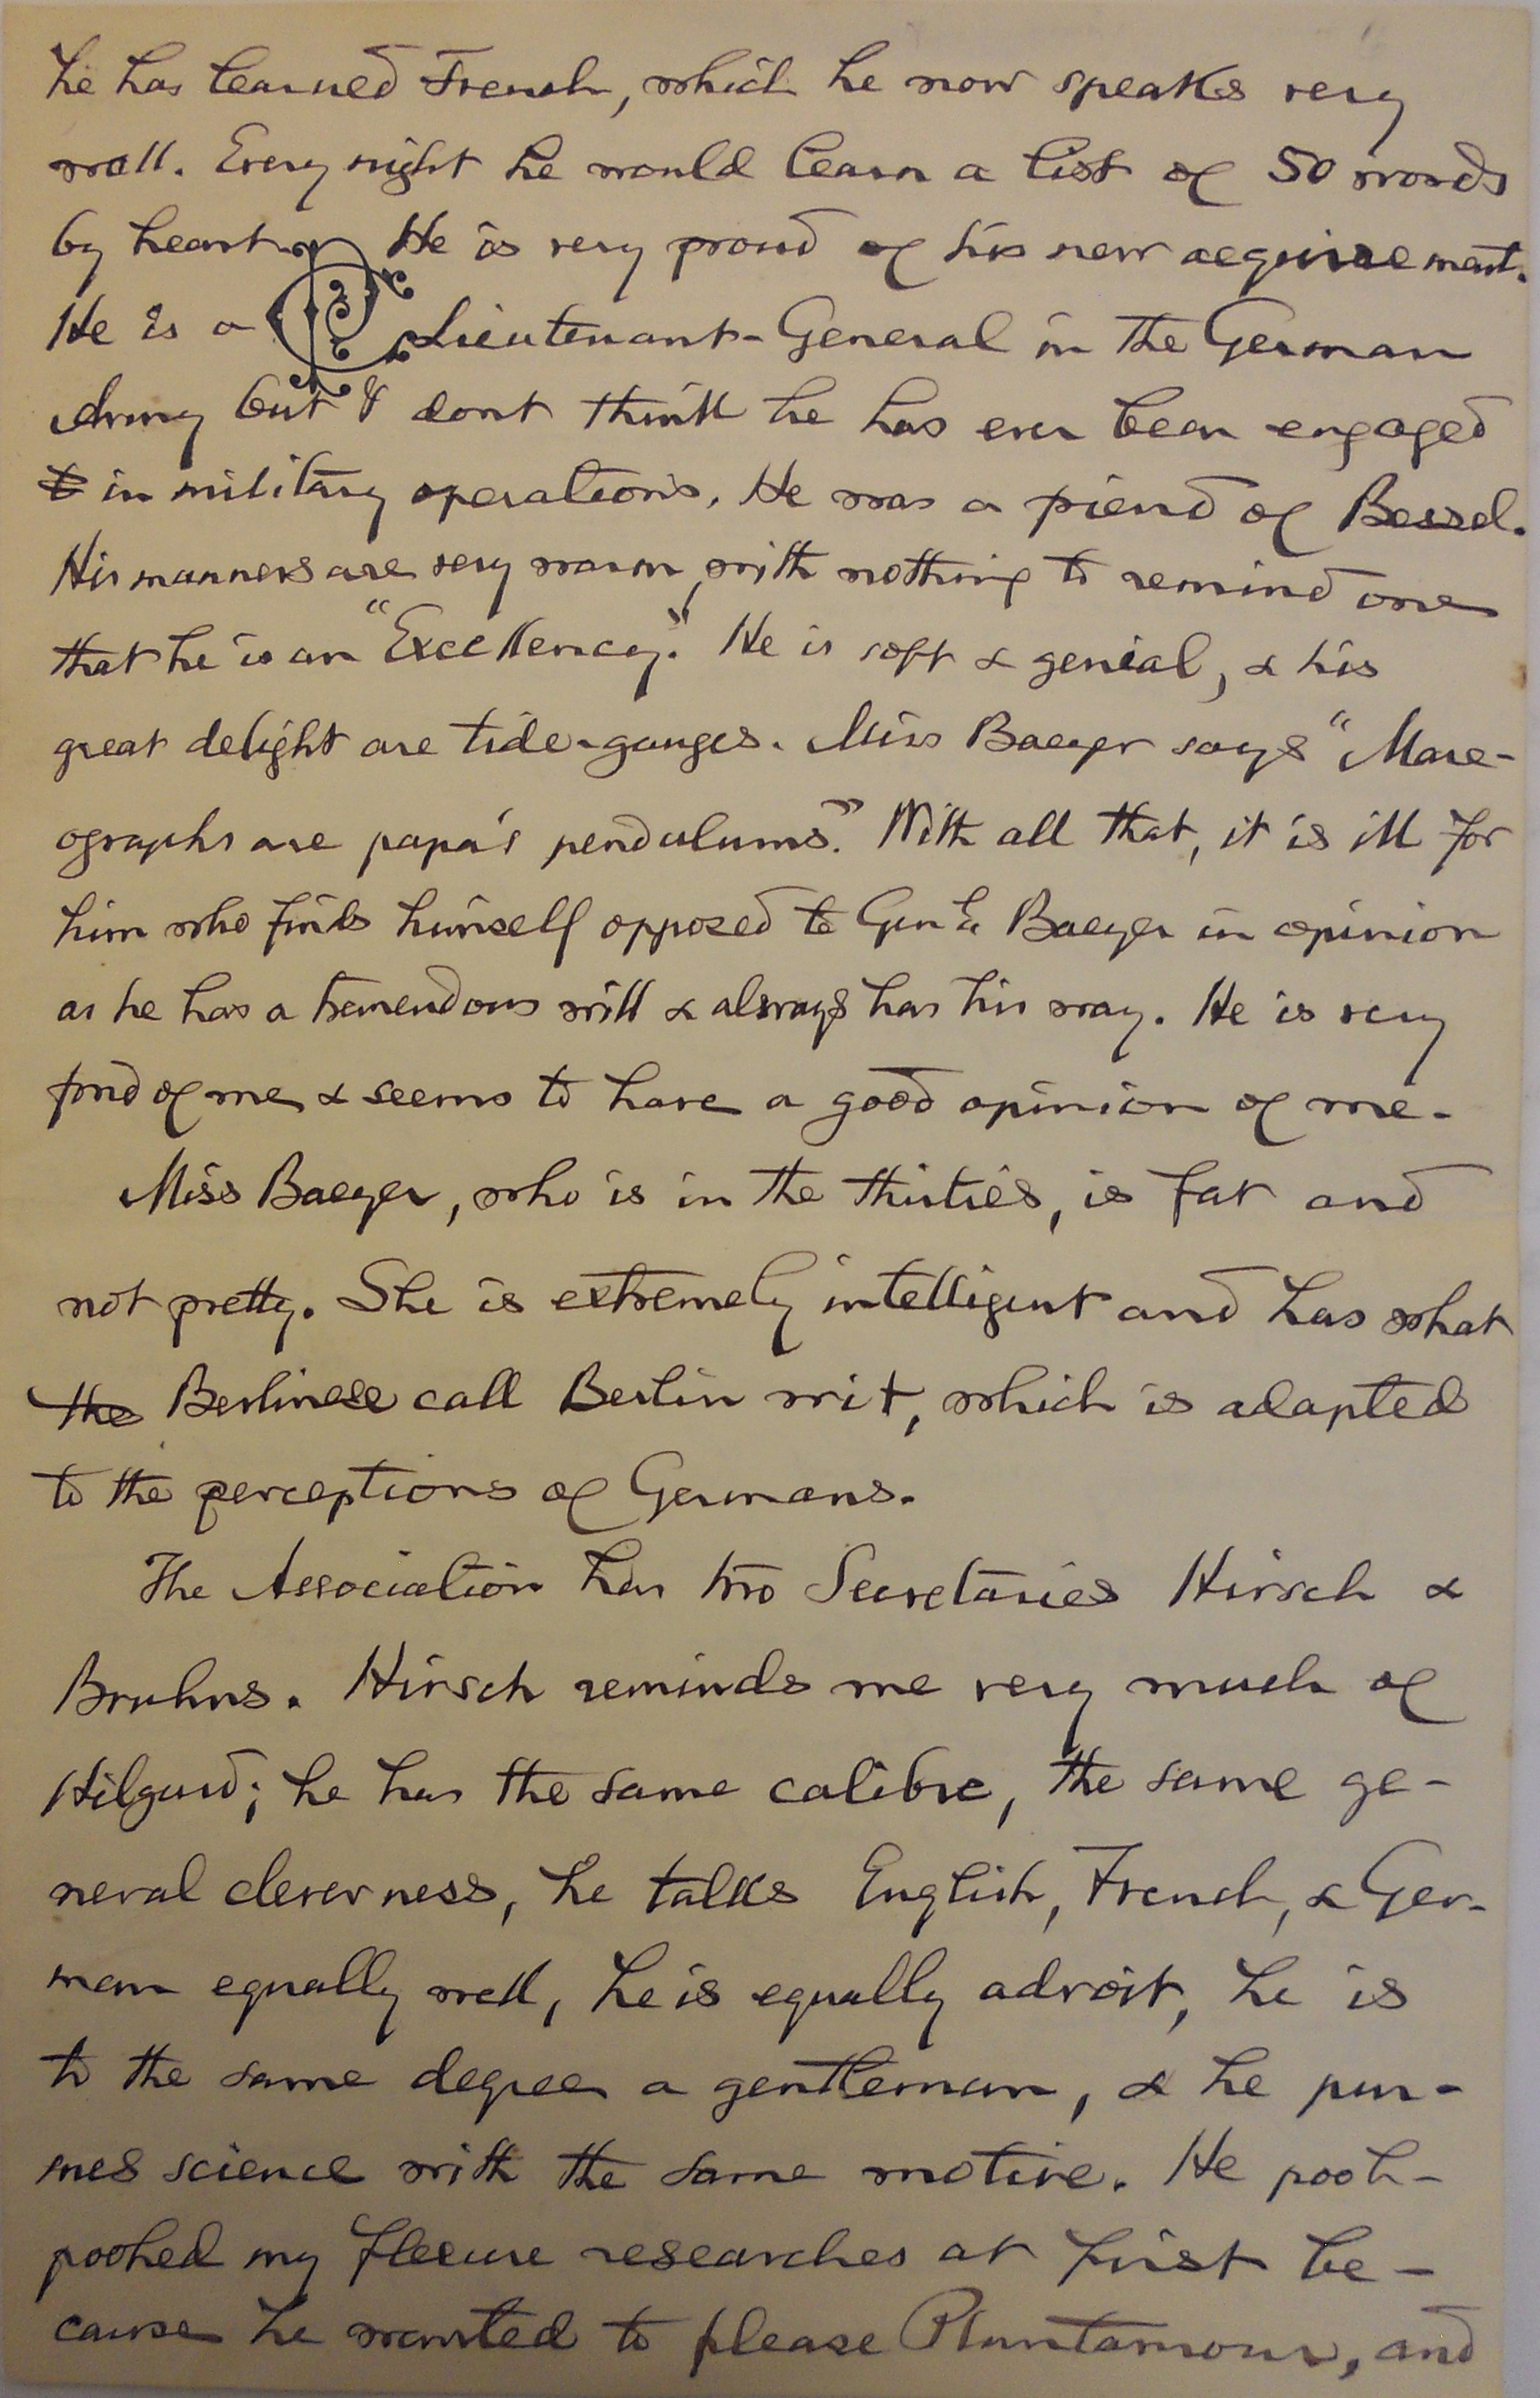 he has learned French, which he now speaks very
well. Every night he would learn a list of 50 words
by heart. He is very proud of his new acquirement.
He is a Lieutenant-General in the German
Army but I dont think he has ever been engaged
in military operations. He was a friend of Bessel.
His manners are very warm, with nothing to remind one
that he is an "Excellency". He is soft & genial, & his
great delight are tide-gauges. Miss Baeyer says "Mare-
ographs are papa's pendulums." With all that, it is ill for
him who finds himself opposed to Genl Baeyer in opinion
as he has a tremendous will & always has his way. He is very
fond of me & seems to have a good opinion of me.
Miss Baeyer, who is in the thirties, is fat and
not pretty. She is extremely intelligent and has what
the Berlinese call Berlin wit, which is adapted
to the perceptions of Germans.
The Association has two Secretaries Hirsch &
Bruhns. Hirsch reminds me very much of
Hilgard; he has the same calibre, the same ge-
neral cleverness, he talks English, French, & Ger-
man equally well, he is equally adroit, he is
to the same degree a gentleman, & he pur-
sues science with the same motive. He pooh-
poohed my flexure researches at first be-
cause he wanted to please Plantamour, and